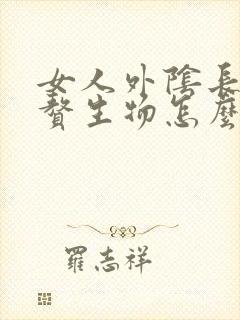 女人外陰長
贅生物怎麼
羅志祥